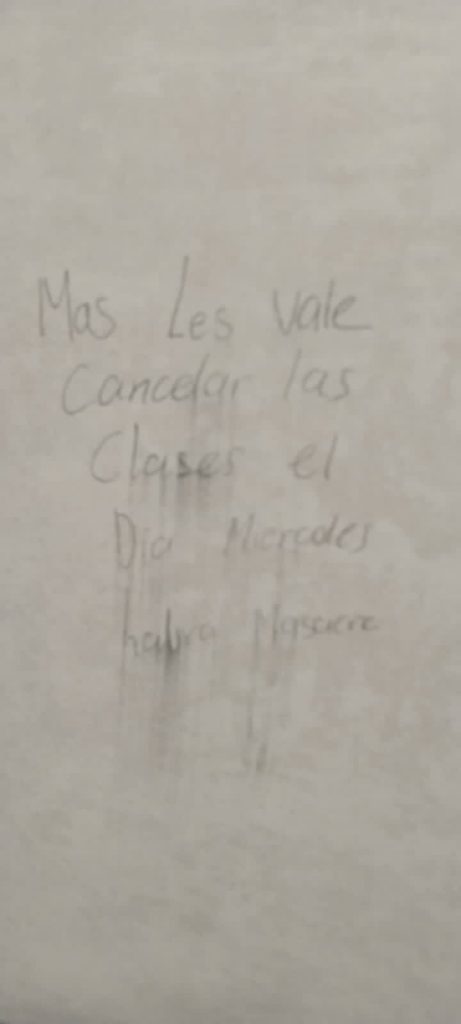 Mas Les vale
Cancelar las
Clases el
Dia Miercoles
habra Masacre